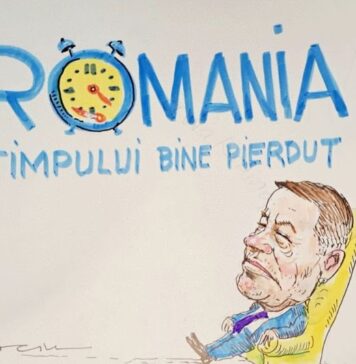 ROMANIA
TIMPULUI BINE PIERDUT